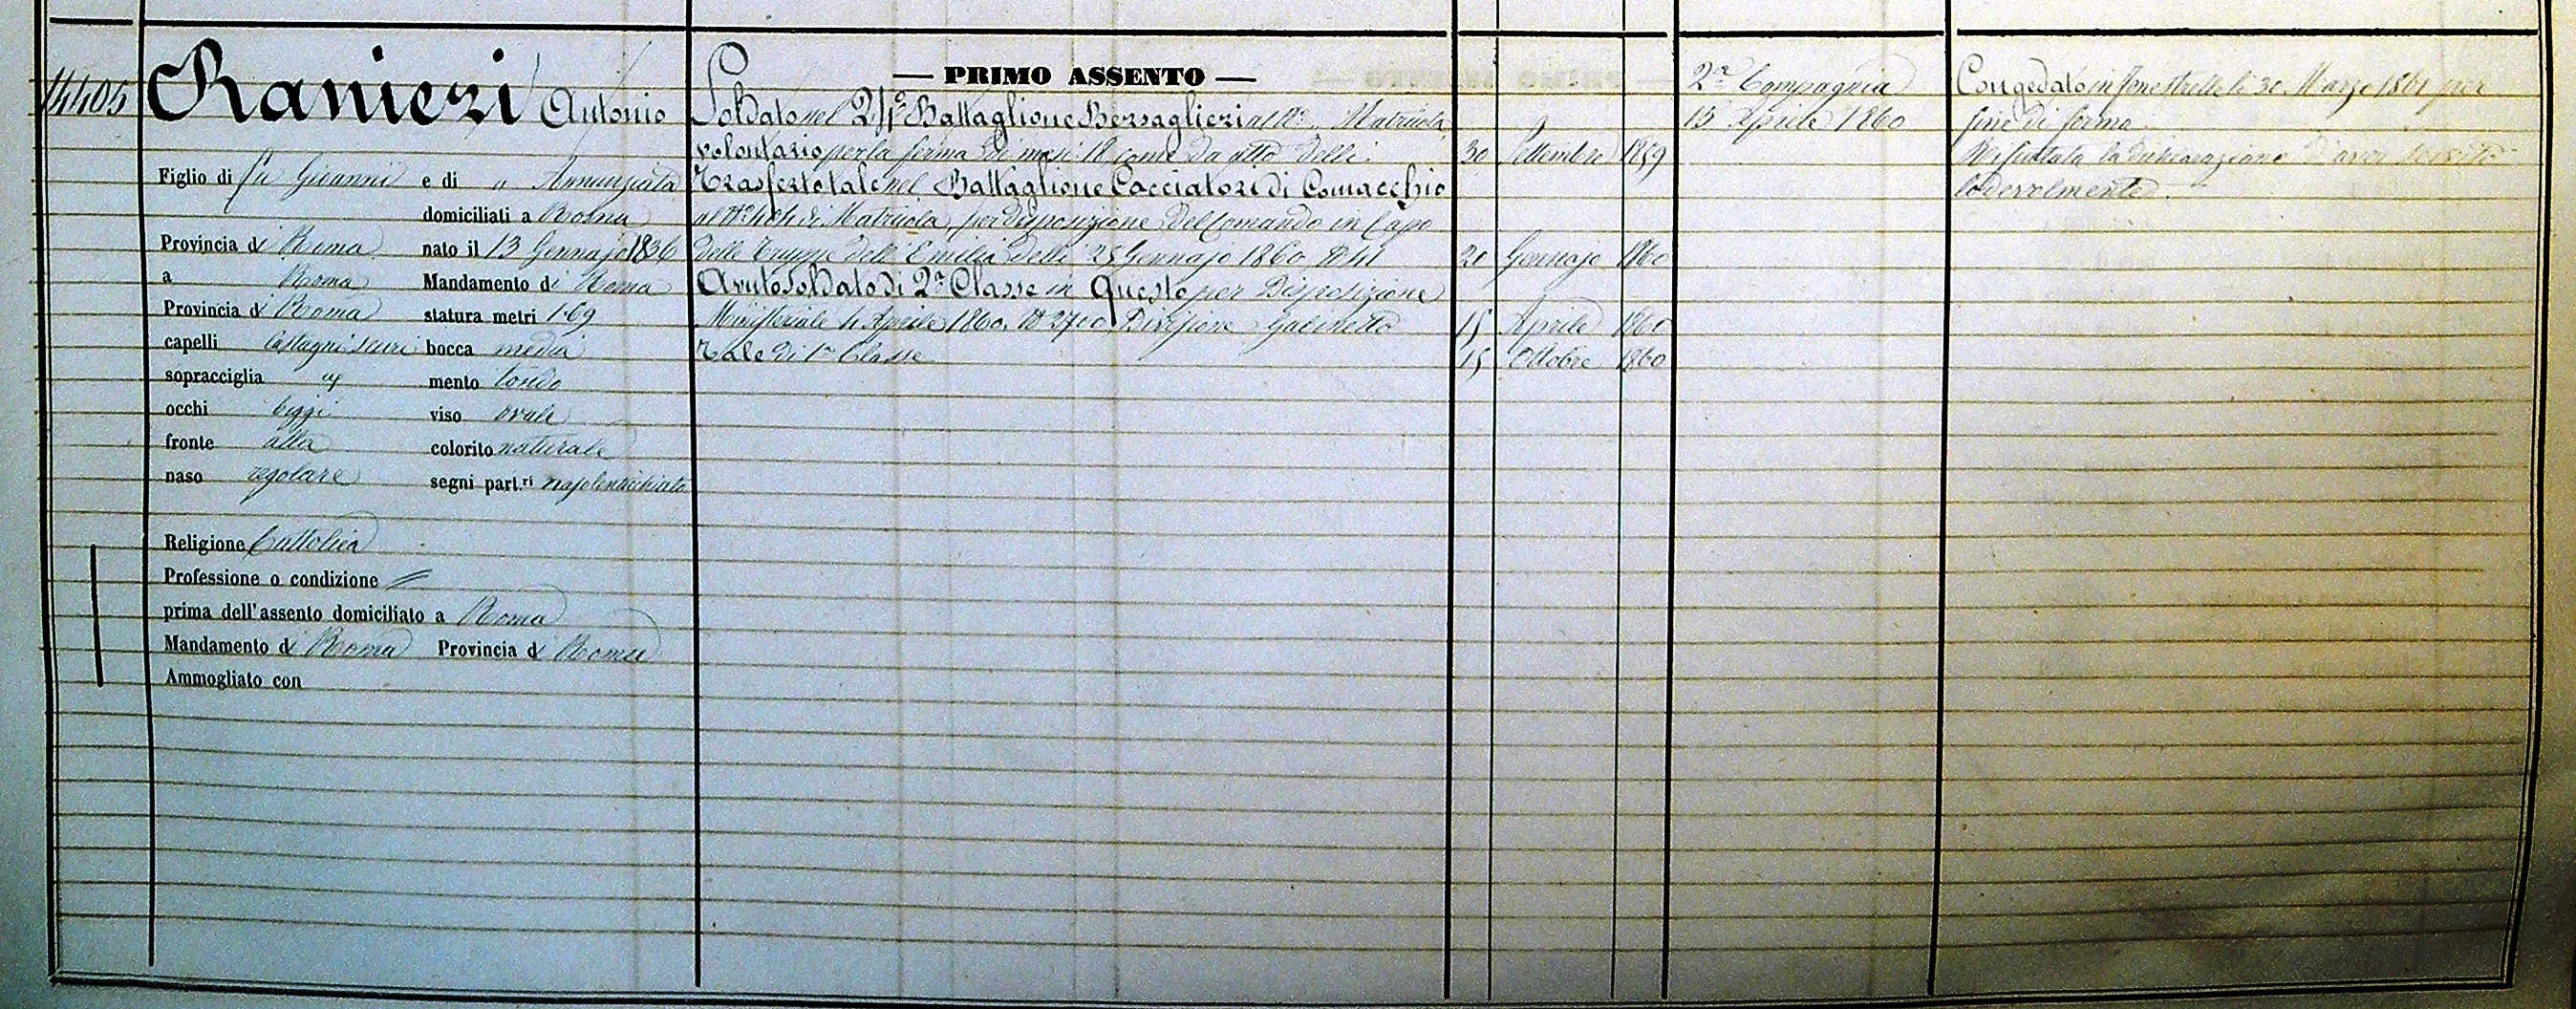 14405
Ranieri Antonio
Figlio di fu Gioanni e di " Annunziata
domiciliati a Roma
Provincia di Roma nato il 13 Gennajo 1836
a Roma Mandamento di Roma
Provincia di Roma statura metri 1.69
capelli Castagni scuri bocca media
sopracciglia id mento tondo
occhi biggi viso ovale
fronte alta colorito naturale
naso regolare segni part.ri naso lenticchiato
Religione Cattolica
Professione o condizione
prima dell'assento domiciliato a Roma
Mandamento di Roma Provincia di Roma
Ammogliato con
— PRIMO ASSENTO —
Soldato nel 24° Battaglione Bersaglieri al N° " Matricola
volontario per la ferma di mesi 18 come da atto delli 30 Settembre 1859
Trasferto tale nel Battaglione Cacciatori di Comacchio
al N° di Matricola, per disposizione del Comando in Capo
delle Truppe dell'Emilia delli 25 Gennajo 1860 20 Gennajo 1860
Avuto soldato di 2a Classe in Questo per Disposizione
Ministeriale 4 Aprile 1860. N 2700 Divisione Gabinetto 15 Aprile 1860
Tale di 1a Classe 15 Ottobre 1860
2a Compagnia
15 Aprile 1860
Congedato in Fenestrelle li 30 Marzo 1861 per
fine di ferma
Rifiutata la dichiarazione d'aver servito
lodevolmente.